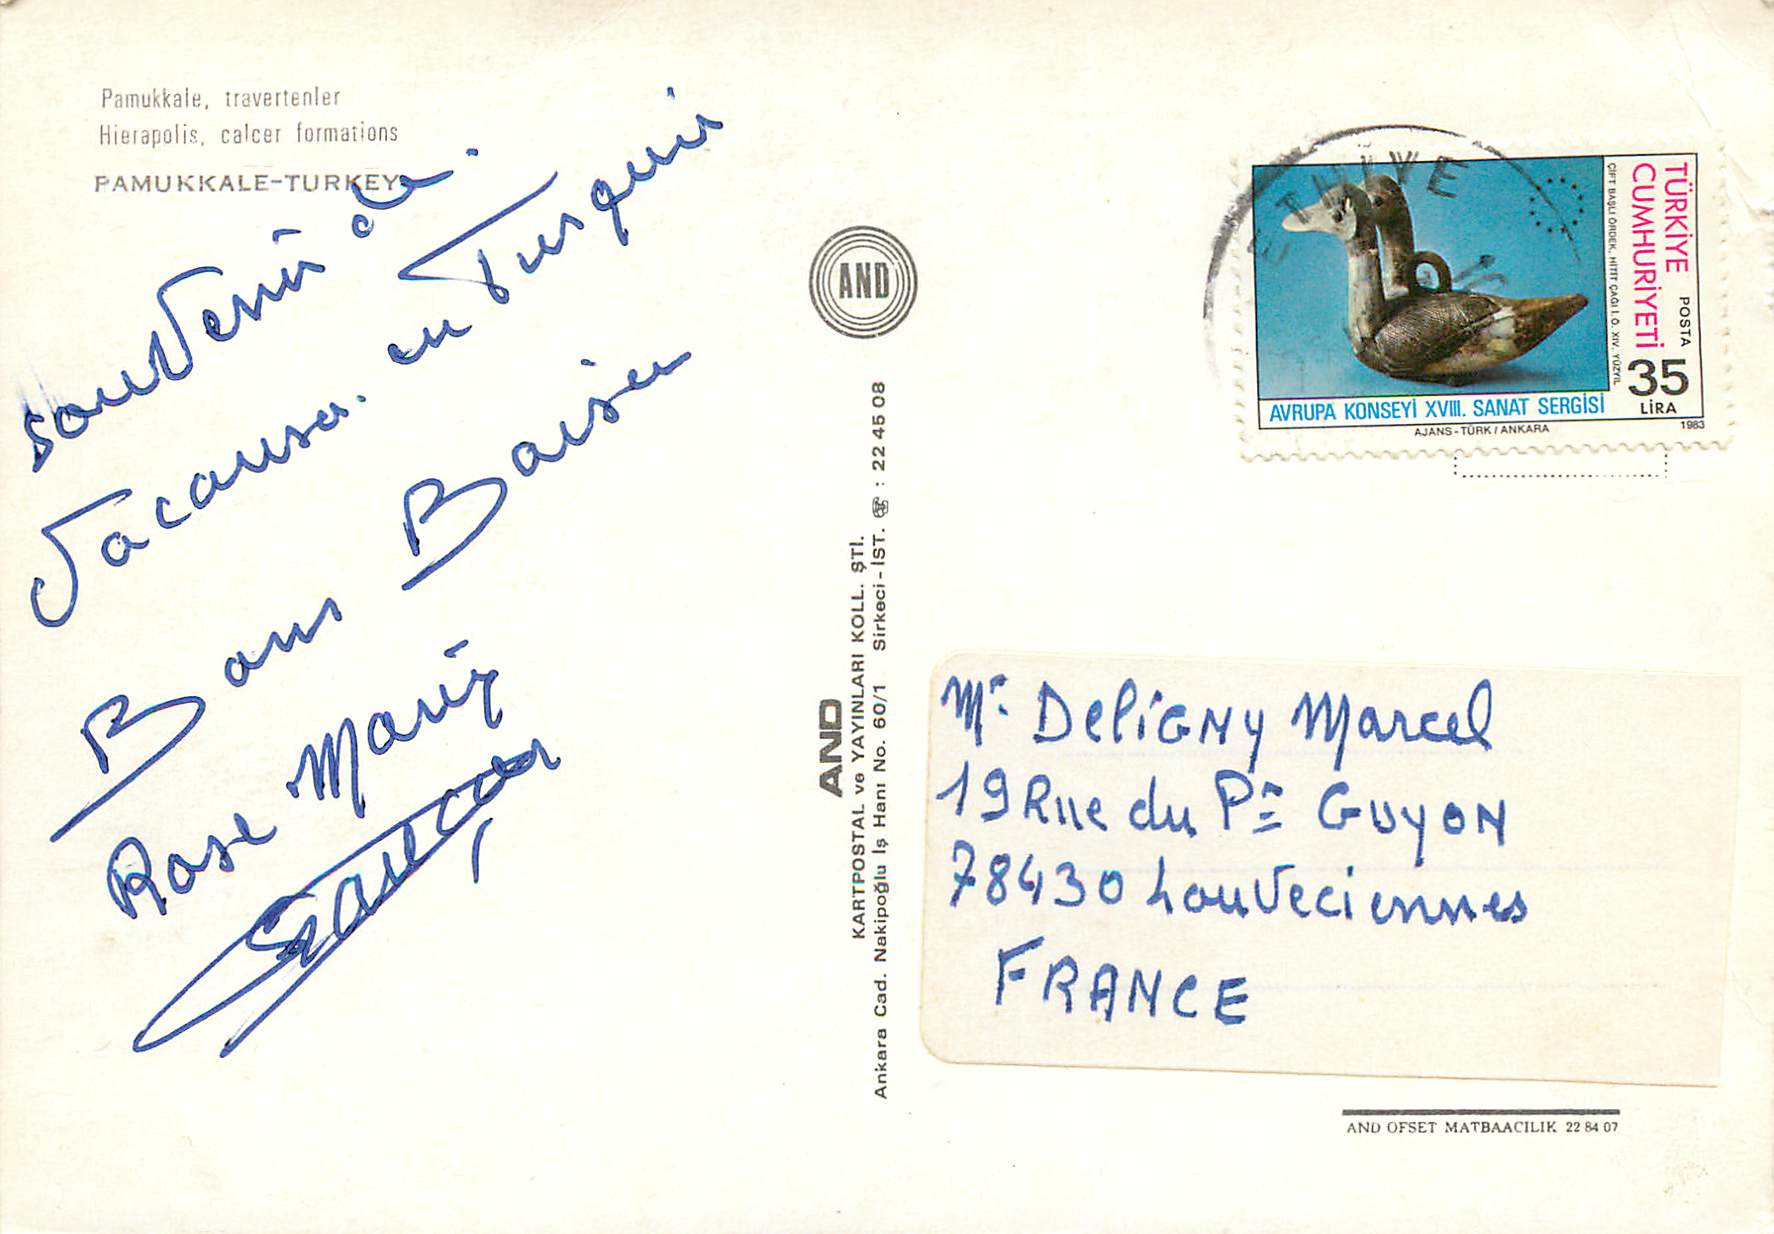 Pamukkale, travertenler
Hierapolis, calcer formations
PAMUKKALE-TURKEY
Souvenir de
Vacances en Turquie
Bons Baisers
Rose Marie
AND
AND
KARTPOSTAL ve YAYINLARI KOLL. ŞTİ.
Ankara Cad. Nakipoğlu İş Hanı No. 60/1 Sirkeci-İST. ☎ : 22 45 08
TÜRKİYE
CUMHURİYETİ
POSTA
35
LİRA
ÇİFT BAŞLI ÖRDEK, HİTİT ÇAĞI İ.Ö. XIV. YÜZYIL
AVRUPA KONSEYİ XVIII. SANAT SERGİSİ
AJANS-TÜRK/ANKARA
1983
Mr. DeliGNy Marcel
19 Rue du Pce GuyoN
78430 Louveciennes
FRANCE
AND OFSET MATBAACILIK 22 84 07